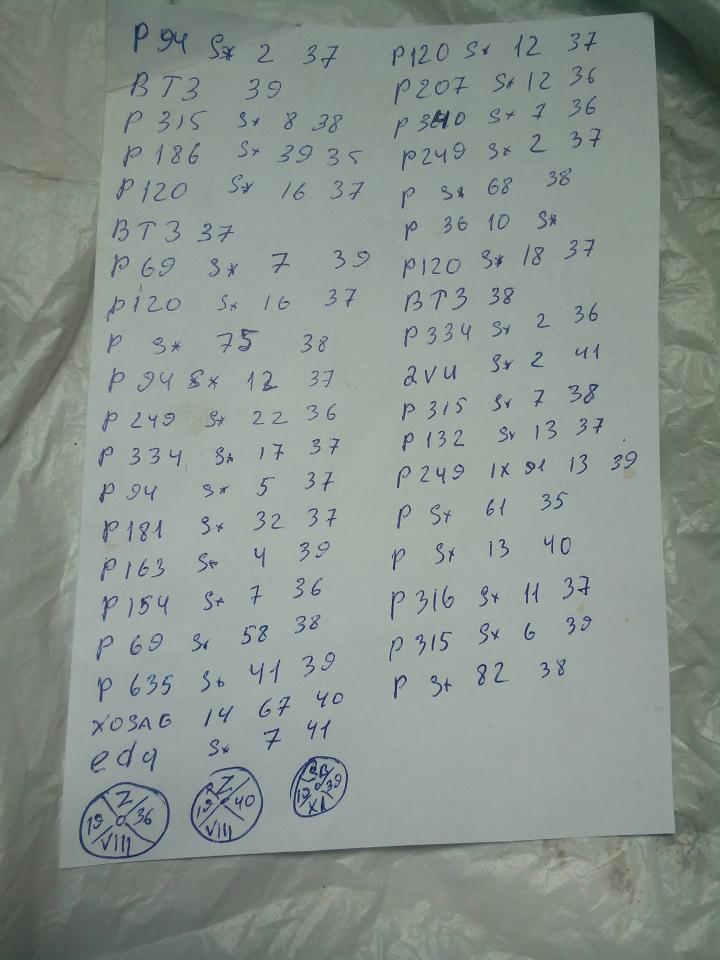 P 94 S* 2 37
ВТЗ 39
P 315 S* 8 38
P 186 S* 39 35
P 120 S* 16 37
ВТЗ 37
P 69 S* 7 39
P 120 S* 16 37
P S* 75 38
P 94 S* 12 37
P 249 S* 22 36
P 334 S* 17 37
P 94 S* 5 37
P 181 S* 32 37
P 163 S* 4 39
P 154 S* 7 36
P 69 S* 58 38
P 635 S* 41 39
ХОЗАG 14 67 40
edq S* 7 41
Z
19 36
VIII
Z
19 40
VIII
SB
19 39
XI
P 120 S* 12 37
P 207 S* 12 36
P 340 S* 7 36
P 249 S* 2 37
P S* 68 38
P 36 10 S*
P 120 S* 18 37
ВТЗ 38
P 334 S* 2 36
S* 2 41
P 315 S* 7 38
P 132 S* 13 37
P 249 IX 91 13 39
P S* 61 35
P S* 13 40
P 316 S* 11 37
P 315 S* 6 39
P S* 82 38